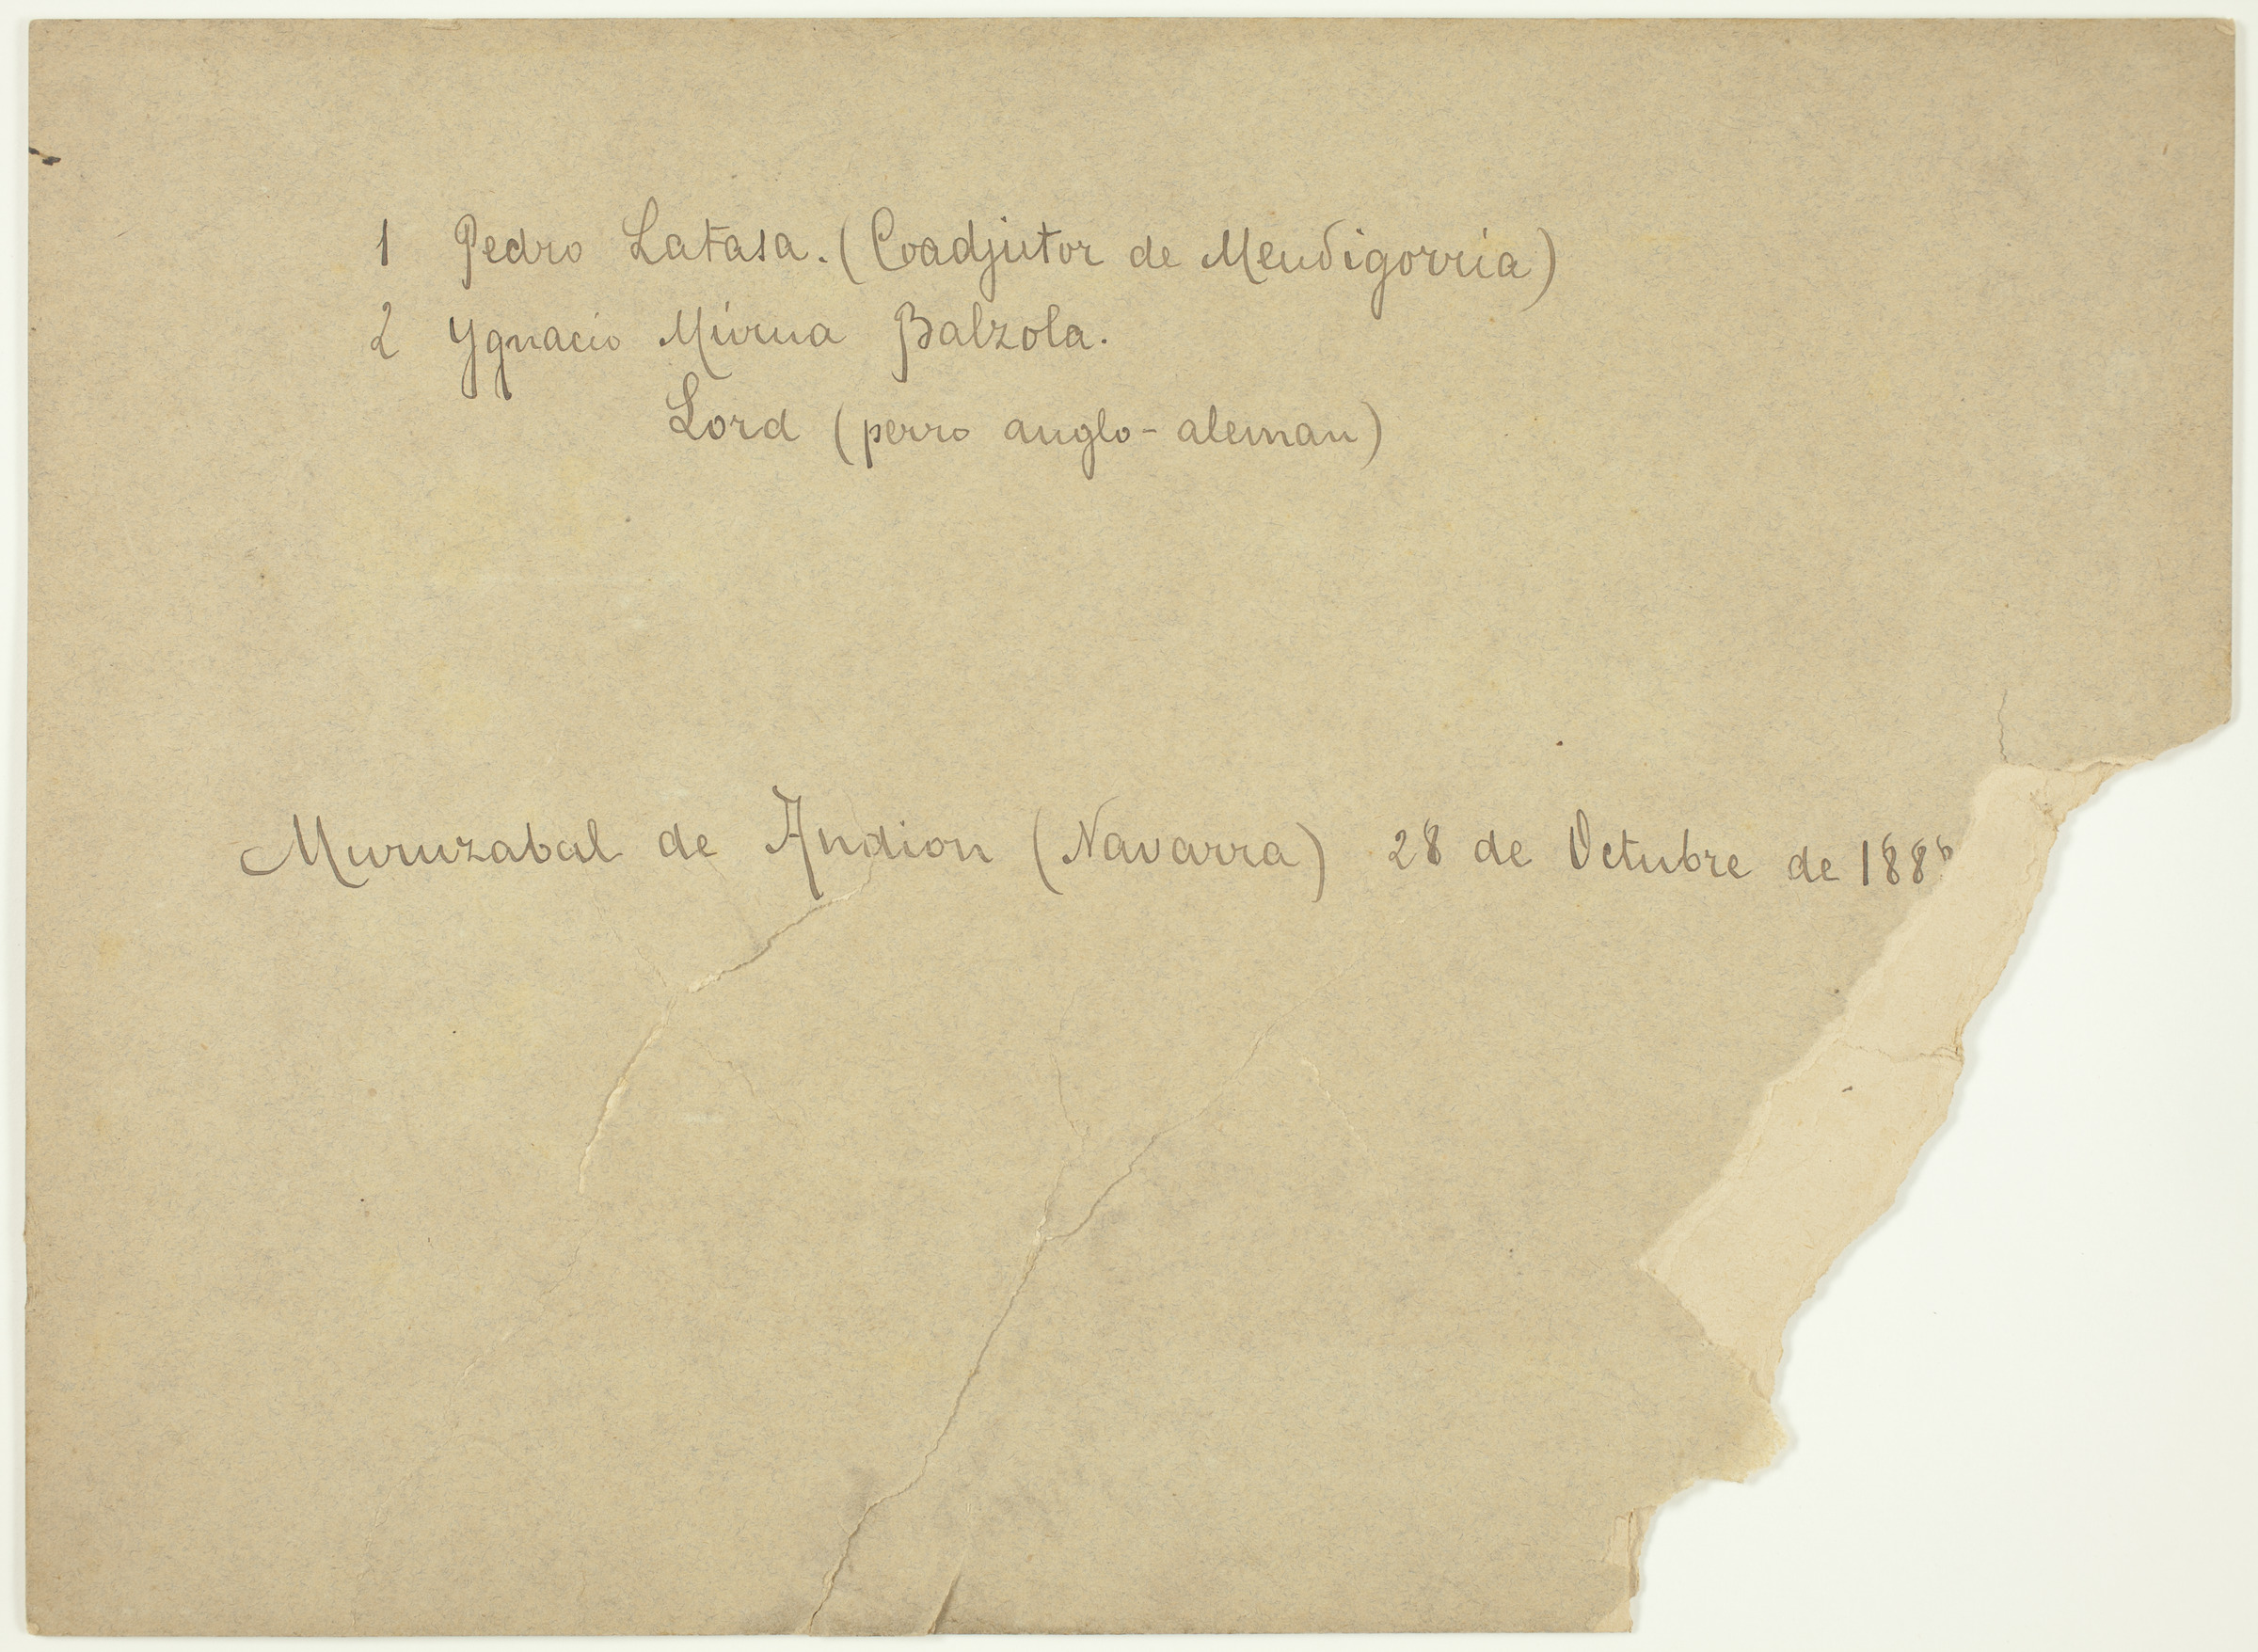 1 Pedro Latasa. (Coadjutor de Mendigorria)
2 Ygnacio Múrua Balzola.
Lord (perro anglo-aleman)
Muruzabal de Andion (Navarra) 28 de Octubre de